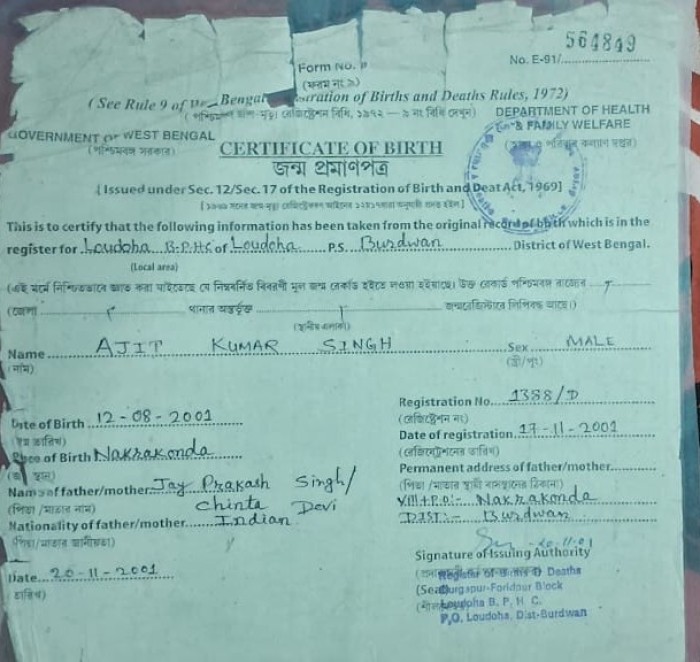 564849
Form No. 9
No. E-91/
(ফরম নং ৯)
( See Rule 9 of Bengal Registration of Births and Deaths Rules, 1972)
রেজিস্ট্রেশন বিধি, ১৯৭২ — ৯ নং বিধি দেখুন)
GOVERNMENT OF WEST BENGAL
(পশ্চিমবঙ্গ সরকার)
DEPARTMENT OF HEALTH
& FAMILY WELFARE
পরিবার কল্যাণ দপ্তর)
CERTIFICATE OF BIRTH
জন্ম প্রমাণপত্র
[Issued under Sec. 12/Sec. 17 of the Registration of Birth and Deat Act, 1969]
This is to certify that the following information has been taken from the original record of birth which is in the
register for Loudoha B.P.H.C of Loudoha P.S. Burdwan District of West Bengal.
(Local area)
(এই মর্মে নিশ্চিতভাবে জ্ঞাত করা যাইতেছে যে নিম্নবর্ণিত বিবরণী মূল জন্ম রেকর্ড হইতে লওয়া হইয়াছে। উক্ত রেকর্ড পশ্চিমবঙ্গ রাজ্যের
(জেলা থানার অন্তর্ভুক্ত জন্মরেজিস্টারে লিপিবদ্ধ আছে।)
(স্থানীয় এলাকা)
Name AJIT KUMAR SINGH Sex MALE
(নাম) (স্ত্রী/পুং)
Date of Birth 12-08-2001
(জন্ম তারিখ)
Place of Birth Nakrakonda
Name of father/mother Jay Prakash Singh/
(পিতা /মাতার নাম) Chinta Devi
Nationality of father/mother Indian
(পিতা /মাতার জাতীয়তা)
Date 20-11-2001
তারিখ)
Registration No. 1388/D
(রেজিস্ট্রেশন নং)
Date of registration 17-11-2001
(রেজিস্ট্রেশনের তারিখ)
Permanent address of father/mother
(পিতা /মাতার স্থায়ী বাসস্থানের ঠিকানা)
Vill+P.O:- Nakrakonda
DIST:- Burdwan
20.11.01
Signature of Issuing Authority
Register of Births & Deaths
(Seal) Durgapur-Foridpur Block
Loudoha B. P. H. C.
P.O. Loudoha, Dist-Burdwan